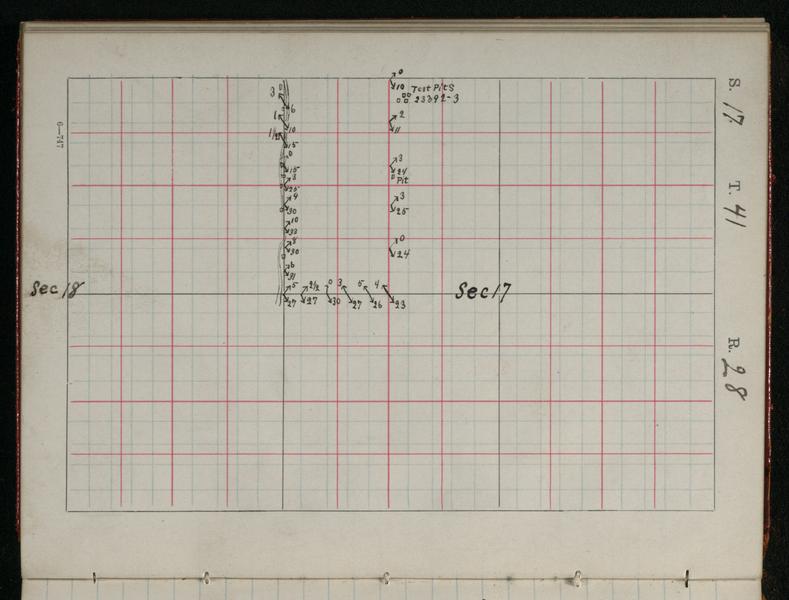 S. 17
T. 41
R. 28
6—747
0
10 Test Pits
23392-3
3
6
2
11
1
10
1/2
15
0
15
3
24
Pit
3
25
9
30
3
25
10
33
8
30
0
24
6
31
Sec 18
5
2 1/2
0
3
5
4
Sec 17
27
27
30
27
26
23